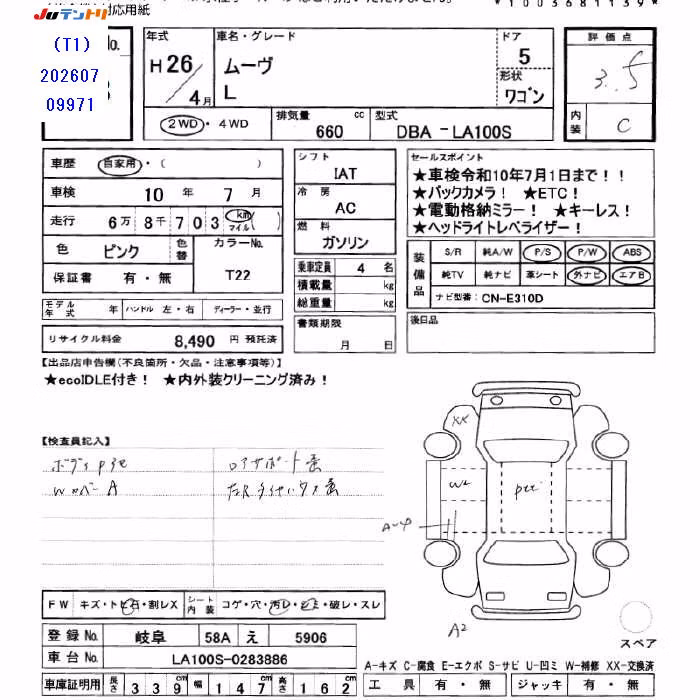 JUテントリ 対応用紙
(T1)
202607
09971
年式
H26/4月
車名・グレード
ムーヴ
L
ドア
5
形状
ワゴン
評価点
3.5
内装
C
2WD・4WD
排気量 660 cc
型式 DBA-LA100S
車歴 自家用・( )
車検 10年7月
走行 6万8千703km マイル( )
色 ピンク 色替
カラーNo. T22
保証書 有・無
シフト
IAT
冷房
AC
燃料
ガソリン
セールスポイント
★車検令和10年7月1日まで！！
★バックカメラ！ ★ETC！
★電動格納ミラー！ ★キーレス！
★ヘッドライトレベライザー！
装備品
S/R 純A/W P/S P/W ABS
純TV 純ナビ 革シート 外ナビ エアB
ナビ型番：CN-E310D
乗車定員 4 名
積載量 kg
総重量 kg
モデル年式 年 ハンドル 左・右 ディーラー・並行
リサイクル料金 8,490 円 預託済
書類期限
月 日
後日品
【出品店申告欄(不良箇所・欠品・注意事項等)】
★ecoIDLE付き！ ★内外装クリーニング済み！
【検査員記入】
XX
W2
A2
FW キズ・トビ石・割レX シート内装 コゲ・穴・汚レ・シミ・破レ・スレ
登録No. 岐阜 58A え 5906
車台No. LA100S-0283886
車庫証明用 長さ 339 幅 147 高さ 162
スペア
A-キズ C-腐食 E-エクボ S-サビ U-凹ミ W-補修 XX-交換済
工具 有・無 ジャッキ 有・無